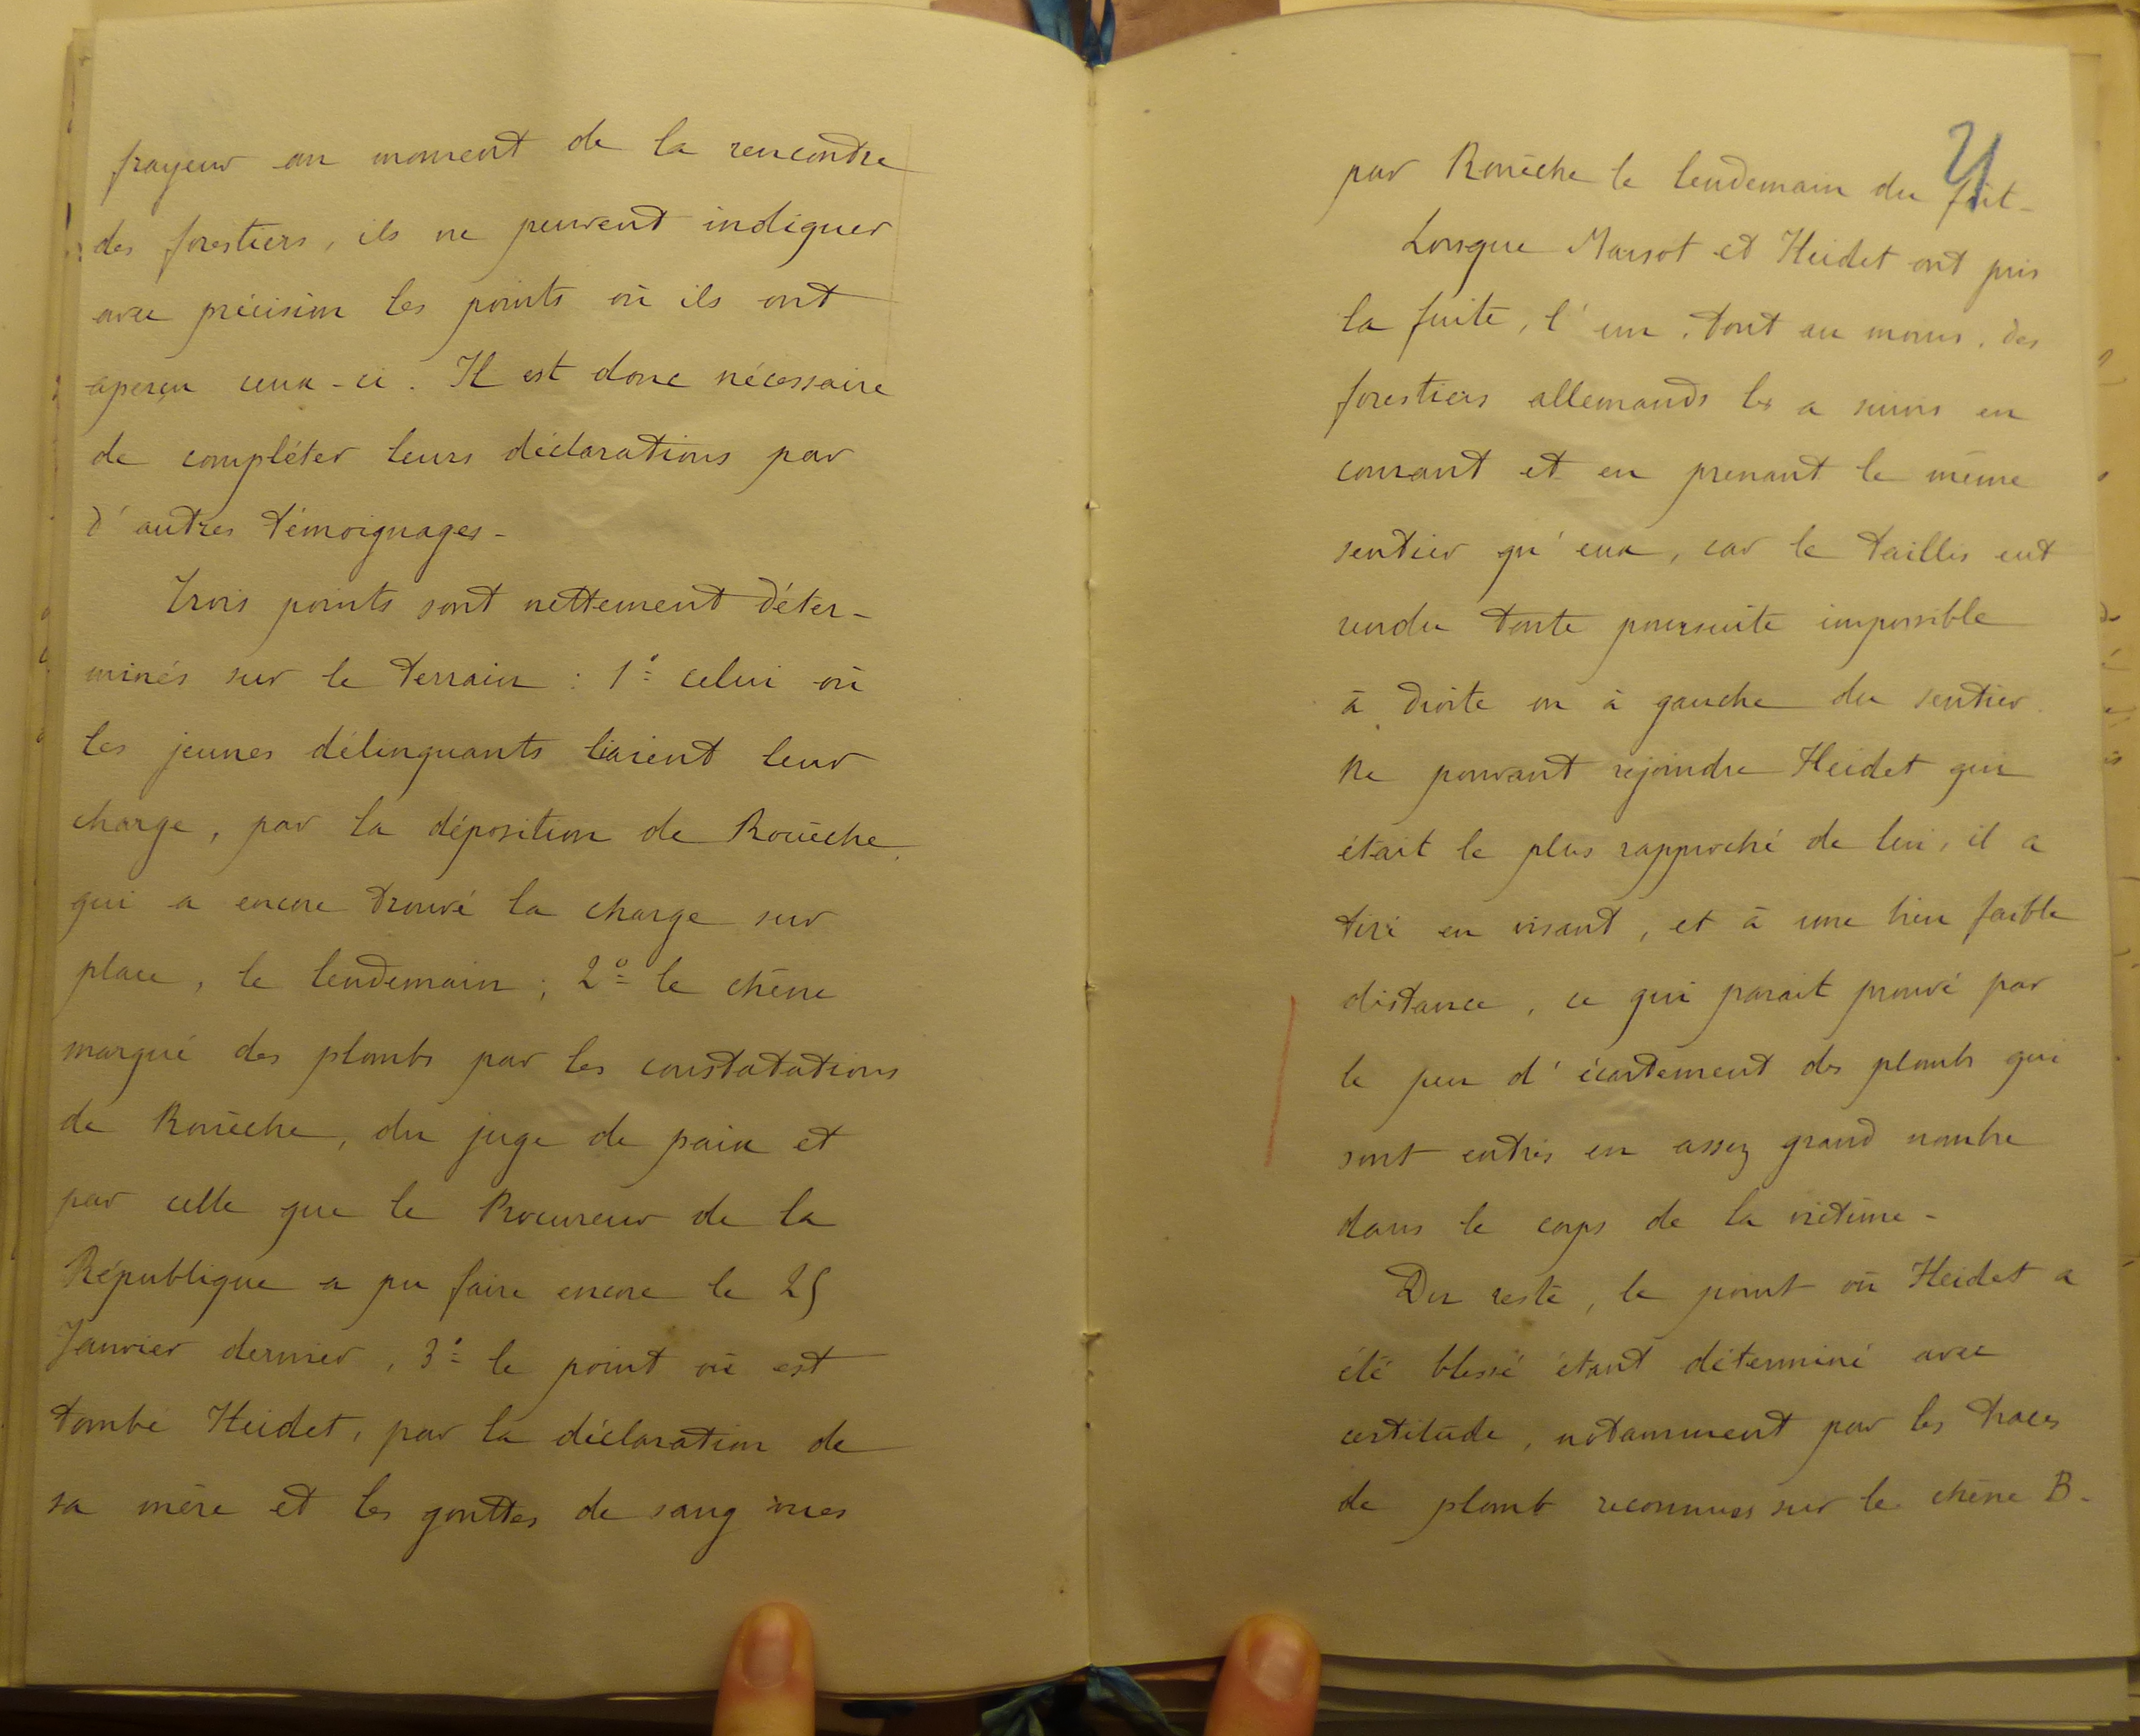 frayeur au moment de la rencontre
des forestiers, ils ne peuvent indiquer
avec précision les points où ils ont
aperçu ceux-ci. Il est donc nécessaire
de compléter leurs déclarations par
d'autres témoignages -
Trois points sont nettement déter-
minés sur le terrain : 1º celui où
les jeunes délinquants liaient leur
charge, par la déposition de Rouèche,
qui a encore trouvé la charge sur
place, le lendemain ; 2º le chêne
marqué des plombs par les constatations
de Rouèche, du juge de paix et
par celle que le Procureur de la
République a pu faire encore le 25
Janvier dernier, 3º le point où est
tombé Heidet, par la déclaration de
sa mère et les gouttes de sang vues
par Rouèche le lendemain du fait -
Lorsque Marsot et Heidet ont pris
la fuite, l'un, tout au moins, des
forestiers allemands les a suivis en
courant et en prenant le même
sentier qu'eux, car le taillis eut
rendu toute poursuite impossible
à droite ou à gauche du sentier.
Ne pouvant rejoindre Heidet qui
était le plus rapproché de lui, il a
tiré en visant, et à une bien faible
distance, ce qui parait prouvé par
le peu d'écartement des plombs qui
sont entrés en assez grand nombre
dans le corps de la victime -
Du reste, le point où Heidet a
été blessé étant déterminé avec
certitude, notamment par les traces
de plomb reconnues sur le chêne B -